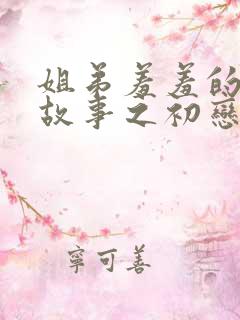 姐弟羞羞的
故事之初戀
寧可善